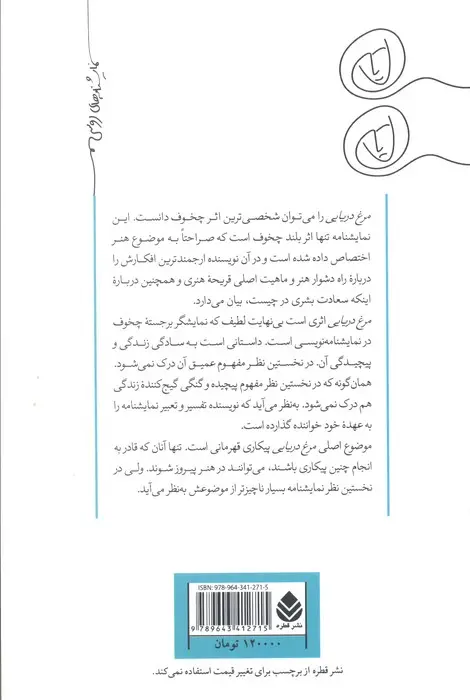 نمایشنامه‌های روسی
مرغ دریایی را می‌توان شخصی‌ترین اثر چخوف دانست. این
نمایشنامه تنها اثر بلند چخوف است که صراحتاً به موضوع هنر
اختصاص داده شده است و در آن نویسنده ارجمندترین افکارش را
دربارهٔ راه دشوار هنر و ماهیت اصلی قریحهٔ هنری و همچنین دربارهٔ
اینکه سعادت بشری در چیست، بیان می‌دارد.
مرغ دریایی اثری است بی‌نهایت لطیف که نمایشگر برجستهٔ چخوف
در نمایشنامه‌نویسی است. داستانی است به سادگی زندگی و
پیچیدگی آن. در نخستین نظر مفهوم عمیق آن درک نمی‌شود.
همان‌گونه که در نخستین نظر مفهوم پیچیده و گنگی گیج‌کنندهٔ زندگی
هم درک نمی‌شود. به‌نظر می‌آید که نویسنده تفسیر و تعبیر نمایشنامه را
به عهدهٔ خود خواننده گذارده است.
موضوع اصلی مرغ دریایی پیکاری قهرمانی است. تنها آنان که قادر به
انجام چنین پیکاری باشند، می‌توانند در هنر پیروز شوند. ولی در
نخستین نظر نمایشنامه بسیار ناچیزتر از موضوعش به‌نظر می‌آید.
ISBN: 978-964-341-271-5
9 789643 412715
۱۲۰۰۰۰ تومان
نشر قطره
نشر قطره از برچسب برای تغییر قیمت استفاده نمی‌کند.